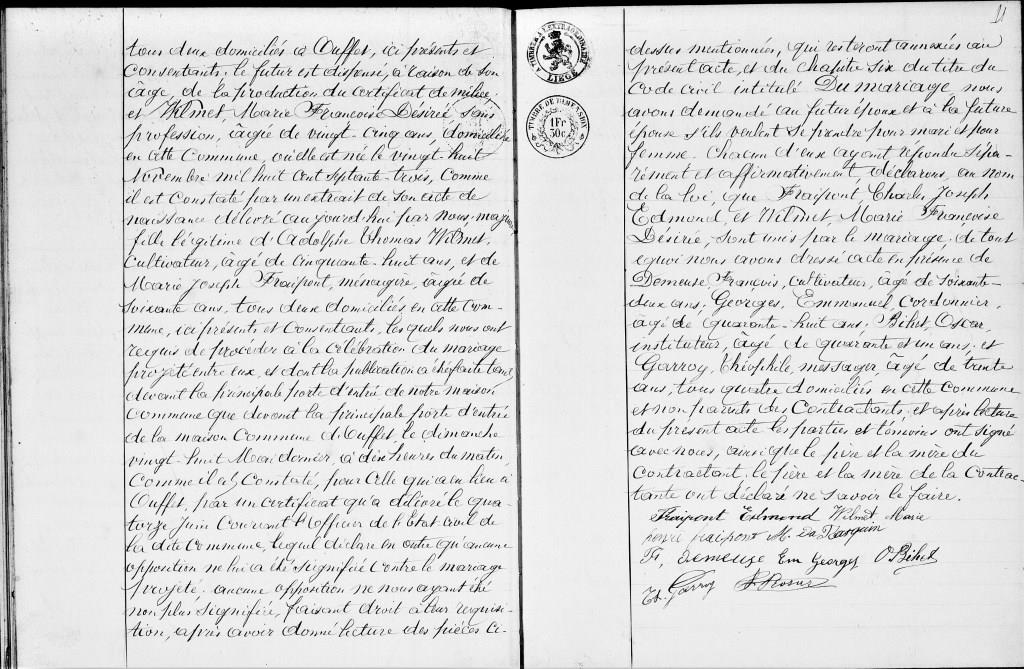 tous deux domiciliés à Ouffet, ici présents et
consentants, le futur est dispensé, à raison de son
âge, de la production du certificat de milice;
et Wilmet, Marie Françoise Désirée, sans
profession, âgée de vingt-cinq ans, domiciliée
en cette Commune, où elle est née le vingt-huit
Novembre mil huit cent septante-trois, comme
il est constaté par un extrait de son acte de
naissance délivré aujourd'hui par nous, majeure
fille légitime d'Adolphe Thomas Wilmet,
cultivateur, âgé de cinquante-huit ans, et de
Marie Joseph Fraipont, ménagère, âgée de
soixante ans, tous deux domiciliés en cette com-
mune, ici présents et consentants, les quels nous ont
requis de procéder à la célébration du mariage
projeté entre eux, et dont la publication a été faite tant
devant la principale porte d'entrée de notre maison
commune que devant la principale porte d'entrée
de la maison Commune d'Ouffet, le dimanche
vingt-huit Mai dernier, à dix heures du matin,
comme il est constaté, pour celle qui a eu lieu à
Ouffet, par un certificat qu'a délivré le qua-
torze Juin courant l'Officier de l'Etat civil de
la dite Commune, lequel déclare en outre qu'aucune
opposition ne lui a été signifiée contre le mariage
projeté. aucune opposition ne nous ayant été
non plus signifiée, faisant droit à leur réquisi-
tion, après avoir donné lecture des pièces ci-
11
TIMBRE A L'EXTRAORDINAIRE
LIEGE
TIMBRE DE DIMENSION
1Fr
30c
dessus mentionnées, qui resteront annexées au
présent acte, et du chapitre six du titre du
Code civil intitulé Du mariage, nous
avons demandé au futur époux et à la future
épouse s'ils veulent se prendre pour mari et pour
femme. Chacun d'eux ayant répondu sépa-
rément et affirmativement, déclarons, au nom
de la loi, que Fraipont, Charles Joseph
Edmond, et Wilmet Marie Françoise
Désirée, sont unis par le mariage; de tout
ce qui nous avons dressé acte en présence de
Demeuse, François, cultivateur, âgé de soixante-
deux ans; Georges, Emmanuel, cordonnier,
âgé de quarante-huit ans; Bihet, Oscar,
instituteur, âgé de quarante et un ans; et
Garroy, Théophile, messager, âgé de trente
ans, tous quatre domiciliés en cette commune
et non parents des contractants; et après lecture
du présent acte les parties et témoins ont signé
avec nous, ainsi que le père et la mère du
contractant, le père et la mère de la Contrac-
tante ont déclaré ne savoir le faire.
Fraipont Edmond Wilmet Marie
henri fraipont M.
Fr. Demeuse Em Georges O Bihet
Th. Garroy